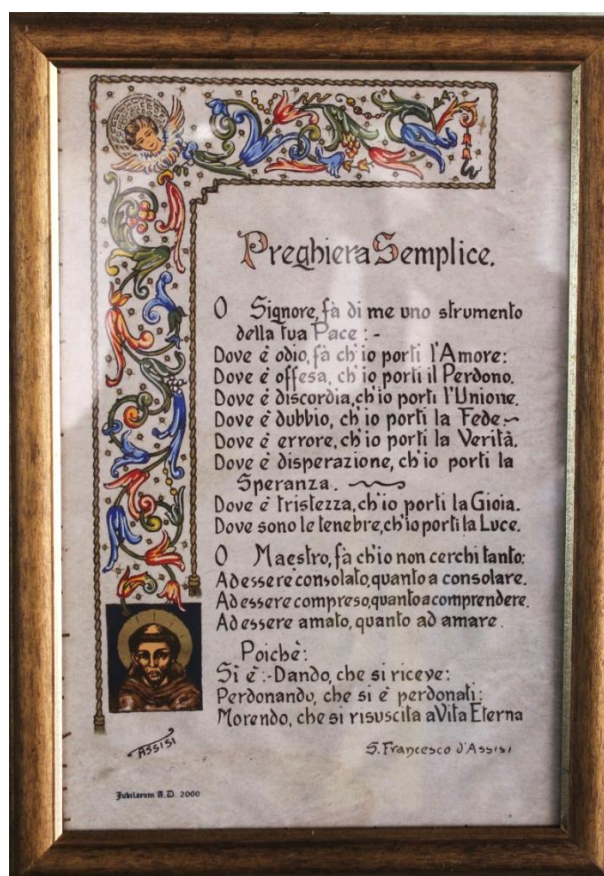 Preghiera Semplice.
O Signore, fà di me uno strumento
della tua Pace : -
Dove è odio, fà ch'io porti l'Amore:
Dove è offesa, ch'io porti il Perdono.
Dove è discordia, ch'io porti l'Unione.
Dove è dubbio, ch'io porti la Fede:~
Dove è errore, ch'io porti la Verità,
Dove è disperazione, ch'io porti la
Speranza.
Dove è tristezza, ch'io porti la Gioia.
Dove sono le tenebre, ch'io porti la Luce.
O Maestro, fà ch'io non cerchi tanto:
Ad essere consolato, quanto a consolare.
Ad essere compreso, quanto a comprendere.
Ad essere amato, quanto ad amare.
Poichè:
Si è :- Dando, che si riceve:
Perdonando, che si è perdonati:
Morendo, che si risuscita a Vita Eterna
S. Francesco d'Assisi
ASSISI
Jubilaeum A.D. 2000